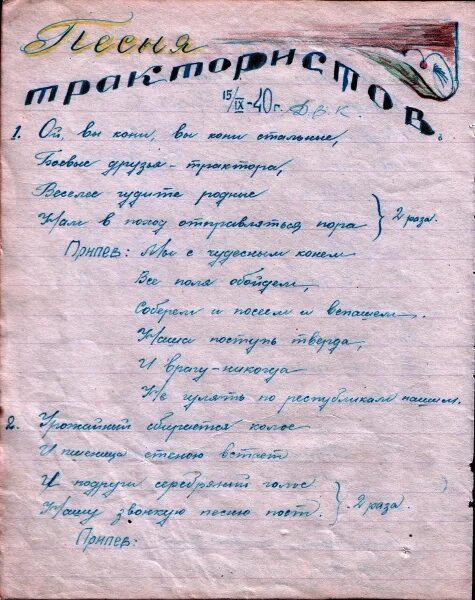 Песня
трактористов.
15/IX-40г. Д.В.К.
1. Ой, вы кони, вы кони стальные,
Боевые друзья - трактора,
Веселее гудите родные
Нам в поход отправляться пора } 2 раза.
Припев: Мы с чудесным конем
Все поля обойдем,
Соберем и посеем и вспашем.
Наша поступь тверда,
И врагу - никогда
Не гулять по республикам нашим.
2. Урожайный сбирается колос
И пшеница стеною встает
И подруги серебряный голос
Нашу звонкую песню поет. } 2 раза.
Припев: